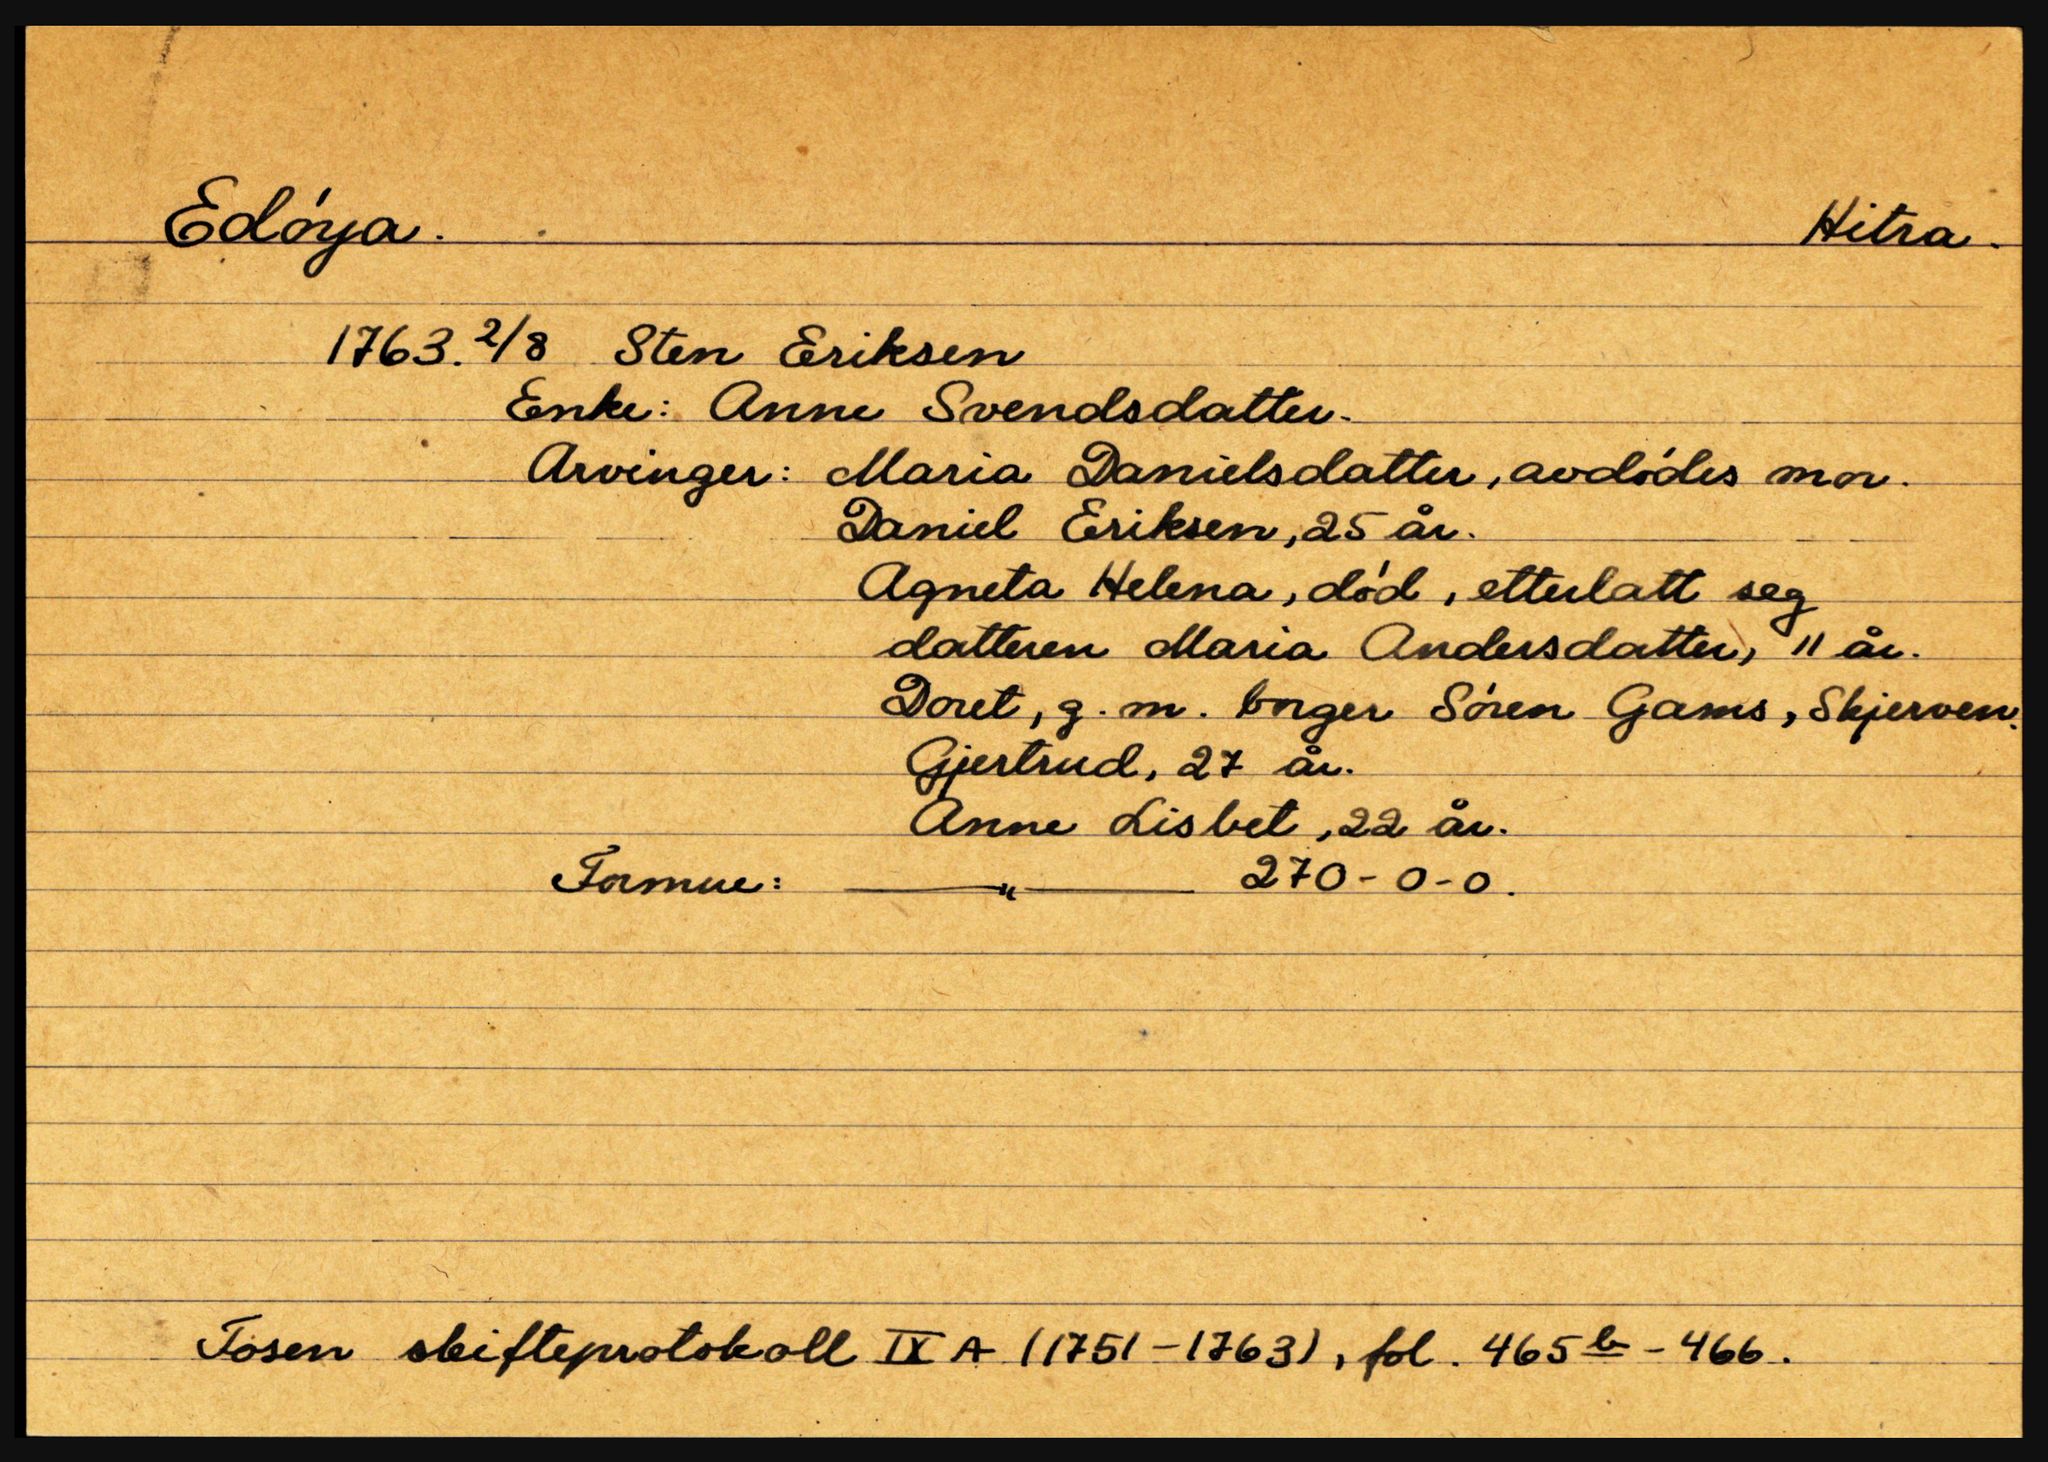 Edøya. Hitra.
1763. 2/8 Sten Eriksen
Enke: Anne Svendsdatter.
Arvinger: Maria Danielsdatter, avdødes mor.
Daniel Eriksen, 25 år.
Agneta Helena, død, etterlatt seg
datteren Maria Andersdatter, 11 år.
Doret, g. m. borger Søren Gams, Skjerven.
Gjertrud, 27 år.
Anne Lisbet, 22 år.
Formue: —"— 270-0-0.
Fosen skifteprotokoll IX A (1751-1763), fol. 465b-466.